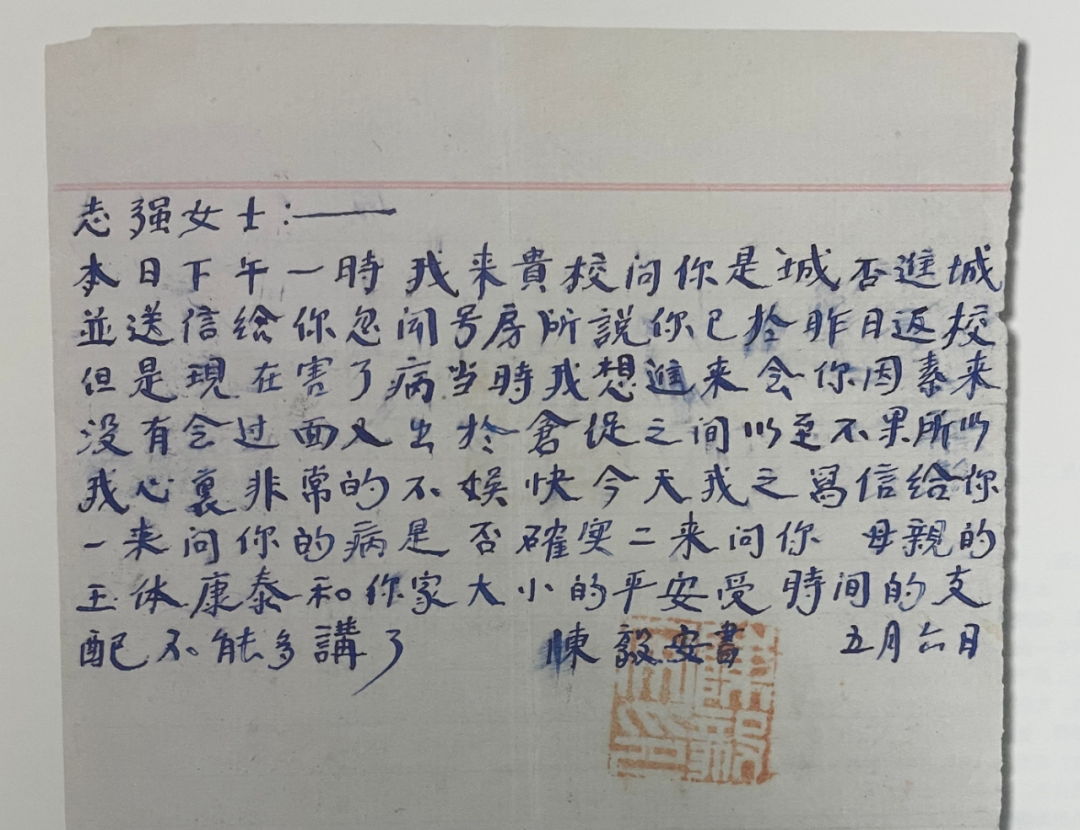 志强女士:——
本日下午一時我来貴校问你是城否進城
並送信给你忽闻号房所説你已於昨日返校
但是現在害了病当時我想進来会你因素来
没有会过面又出於倉促之间以至不果所以
我心裏非常的不娱快今天我之寫信给你
一来问你的病是否確实二来问你 母親的
玉体康泰和你家大小的平安受時间的支
配不能多講了 陳毅安書 五月六日